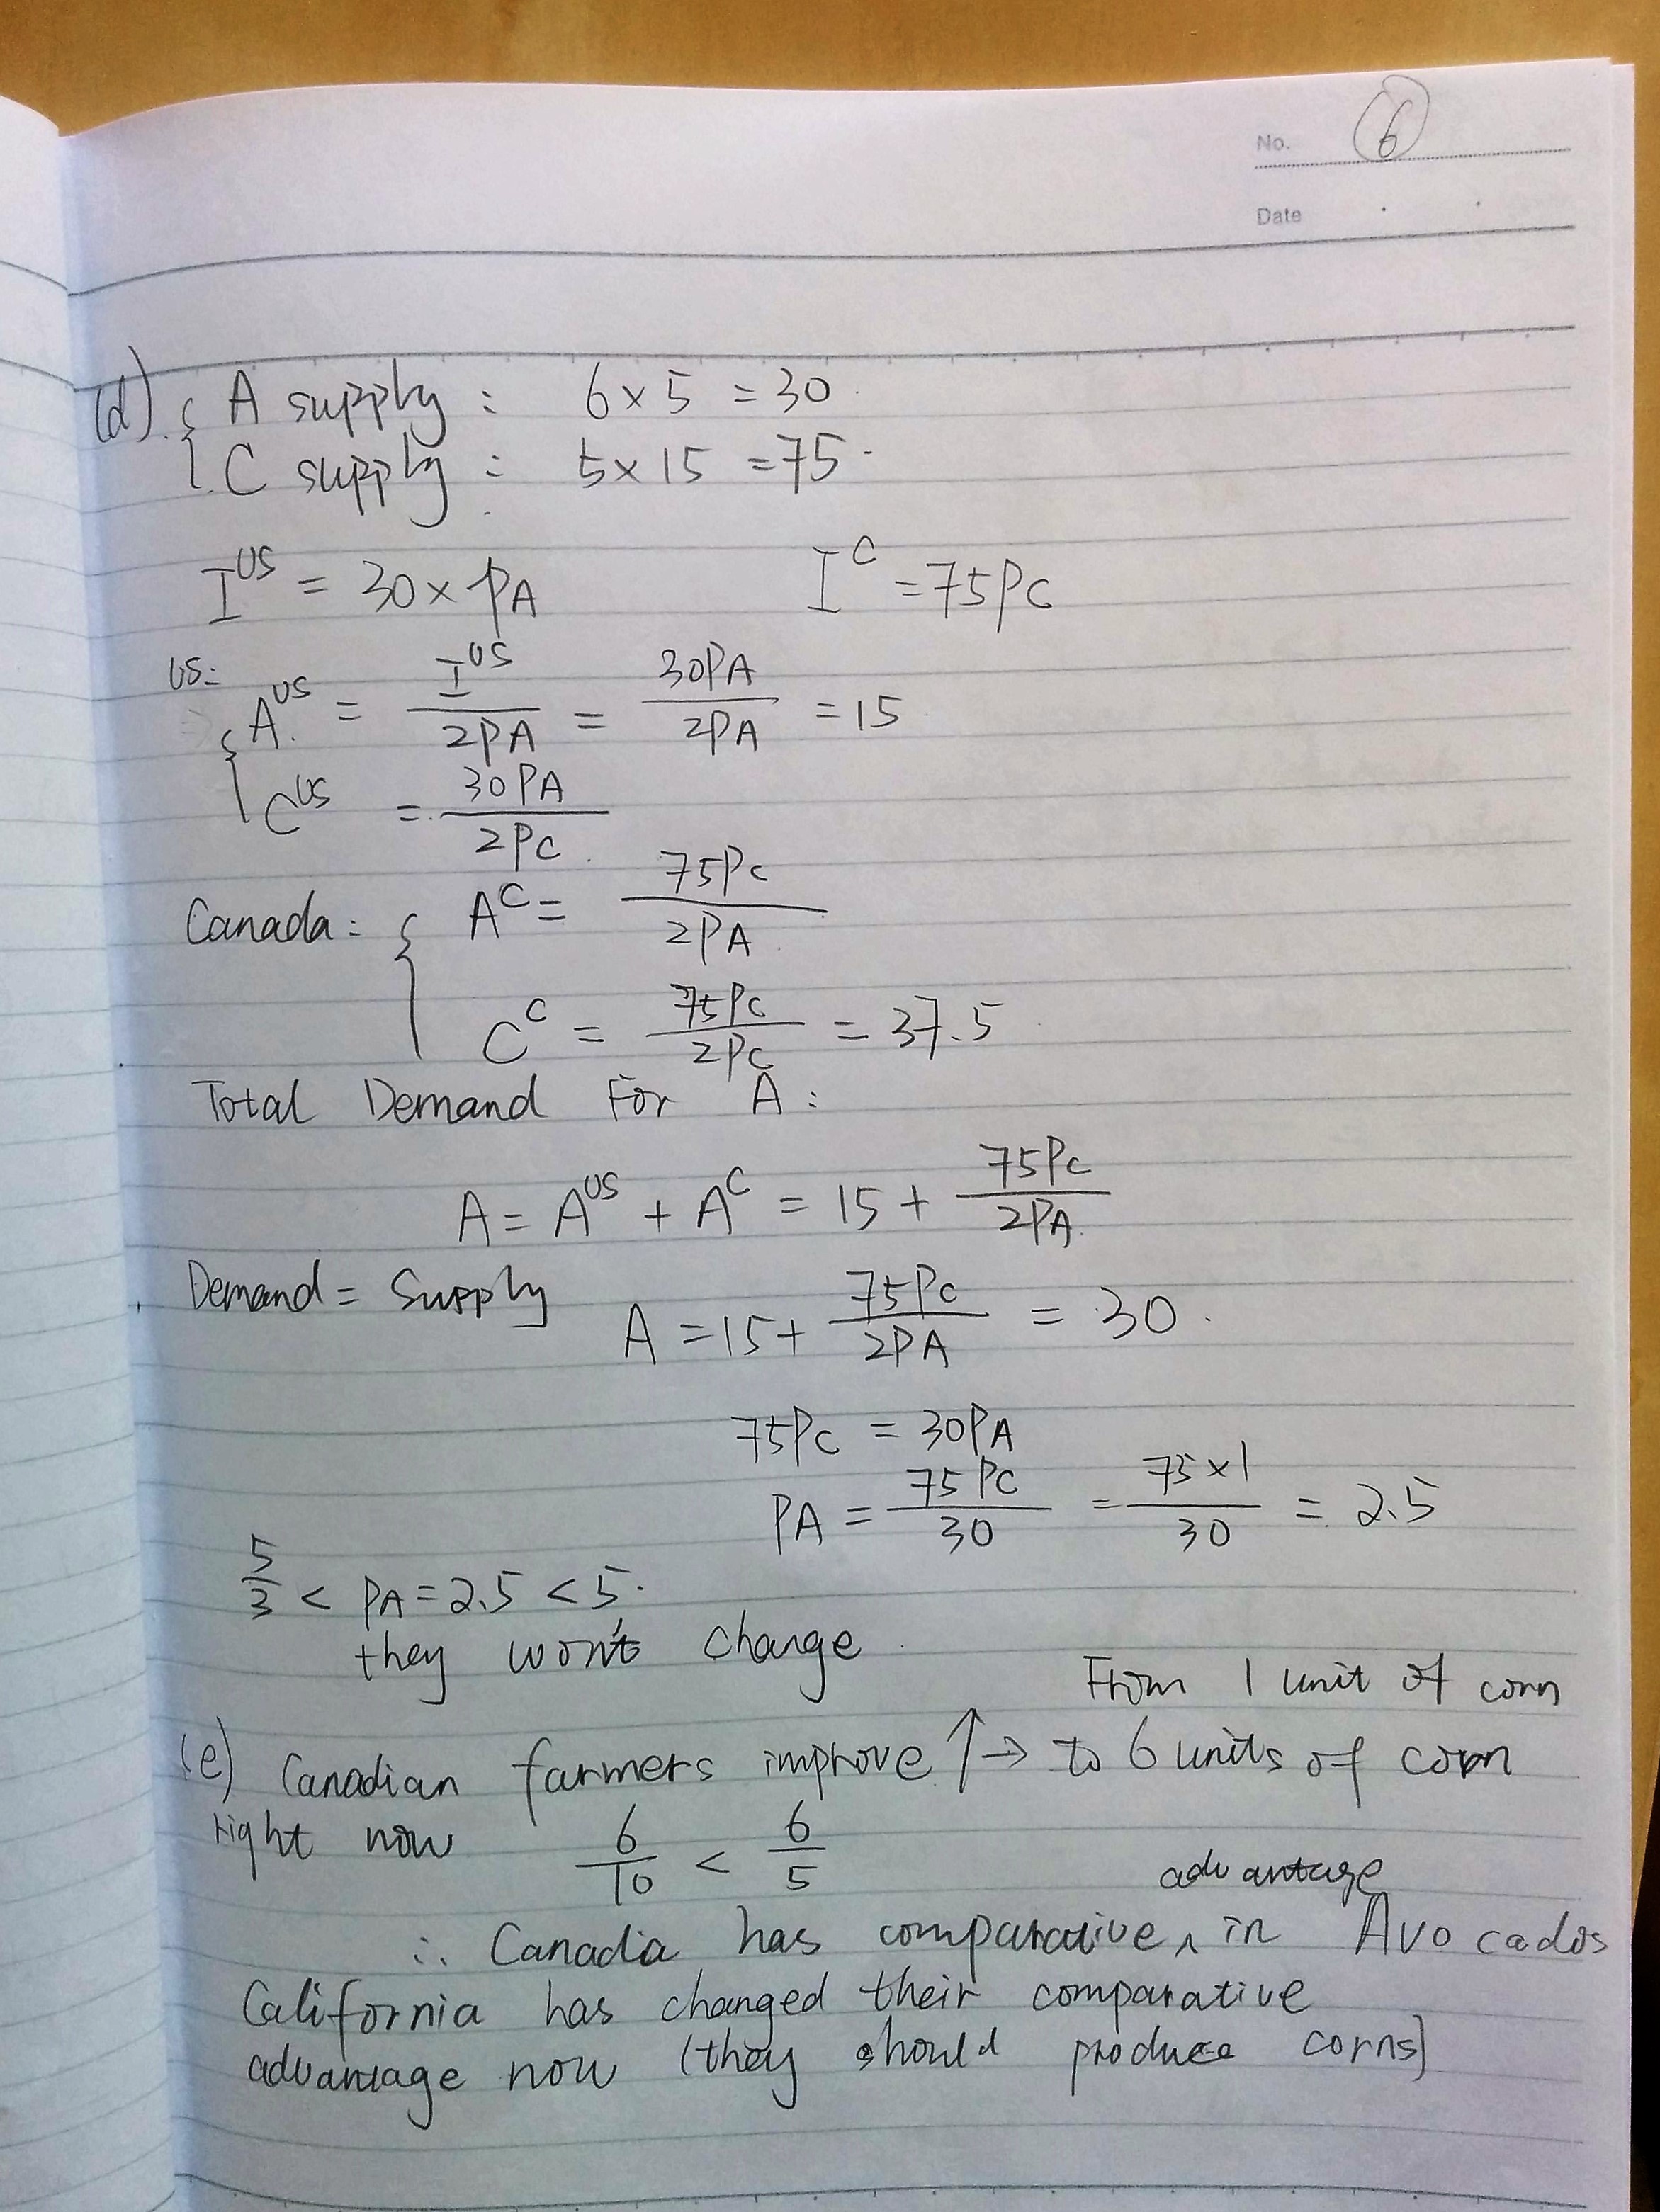 No. 6
Date
(d). { A supply : 6 × 5 = 30
C supply : 5 × 15 = 75.
I^US = 30 × PA    I^C = 75PC
US:
{ A^US = I^US / 2PA = 30PA / 2PA = 15
C^US = 30PA / 2PC
Canada: { A^C = 75PC / 2PA
C^C = 75PC / 2PC = 37.5
Total Demand For A :
A = A^US + A^C = 15 + 75PC / 2PA
Demand = Supply    A = 15 + 75PC / 2PA = 30.
75PC = 30PA
PA = 75PC / 30 = 75×1 / 30 = 2.5
5/3 < PA = 2.5 < 5.
they won't change.
From 1 unit of corn
(e) Canadian farmers improve ↑ → to 6 units of corn
right now    6/10 < 6/5
∴ Canada has comparative ^ advantage in Avocados
California has changed their comparative
advantage now (they should produce corns)